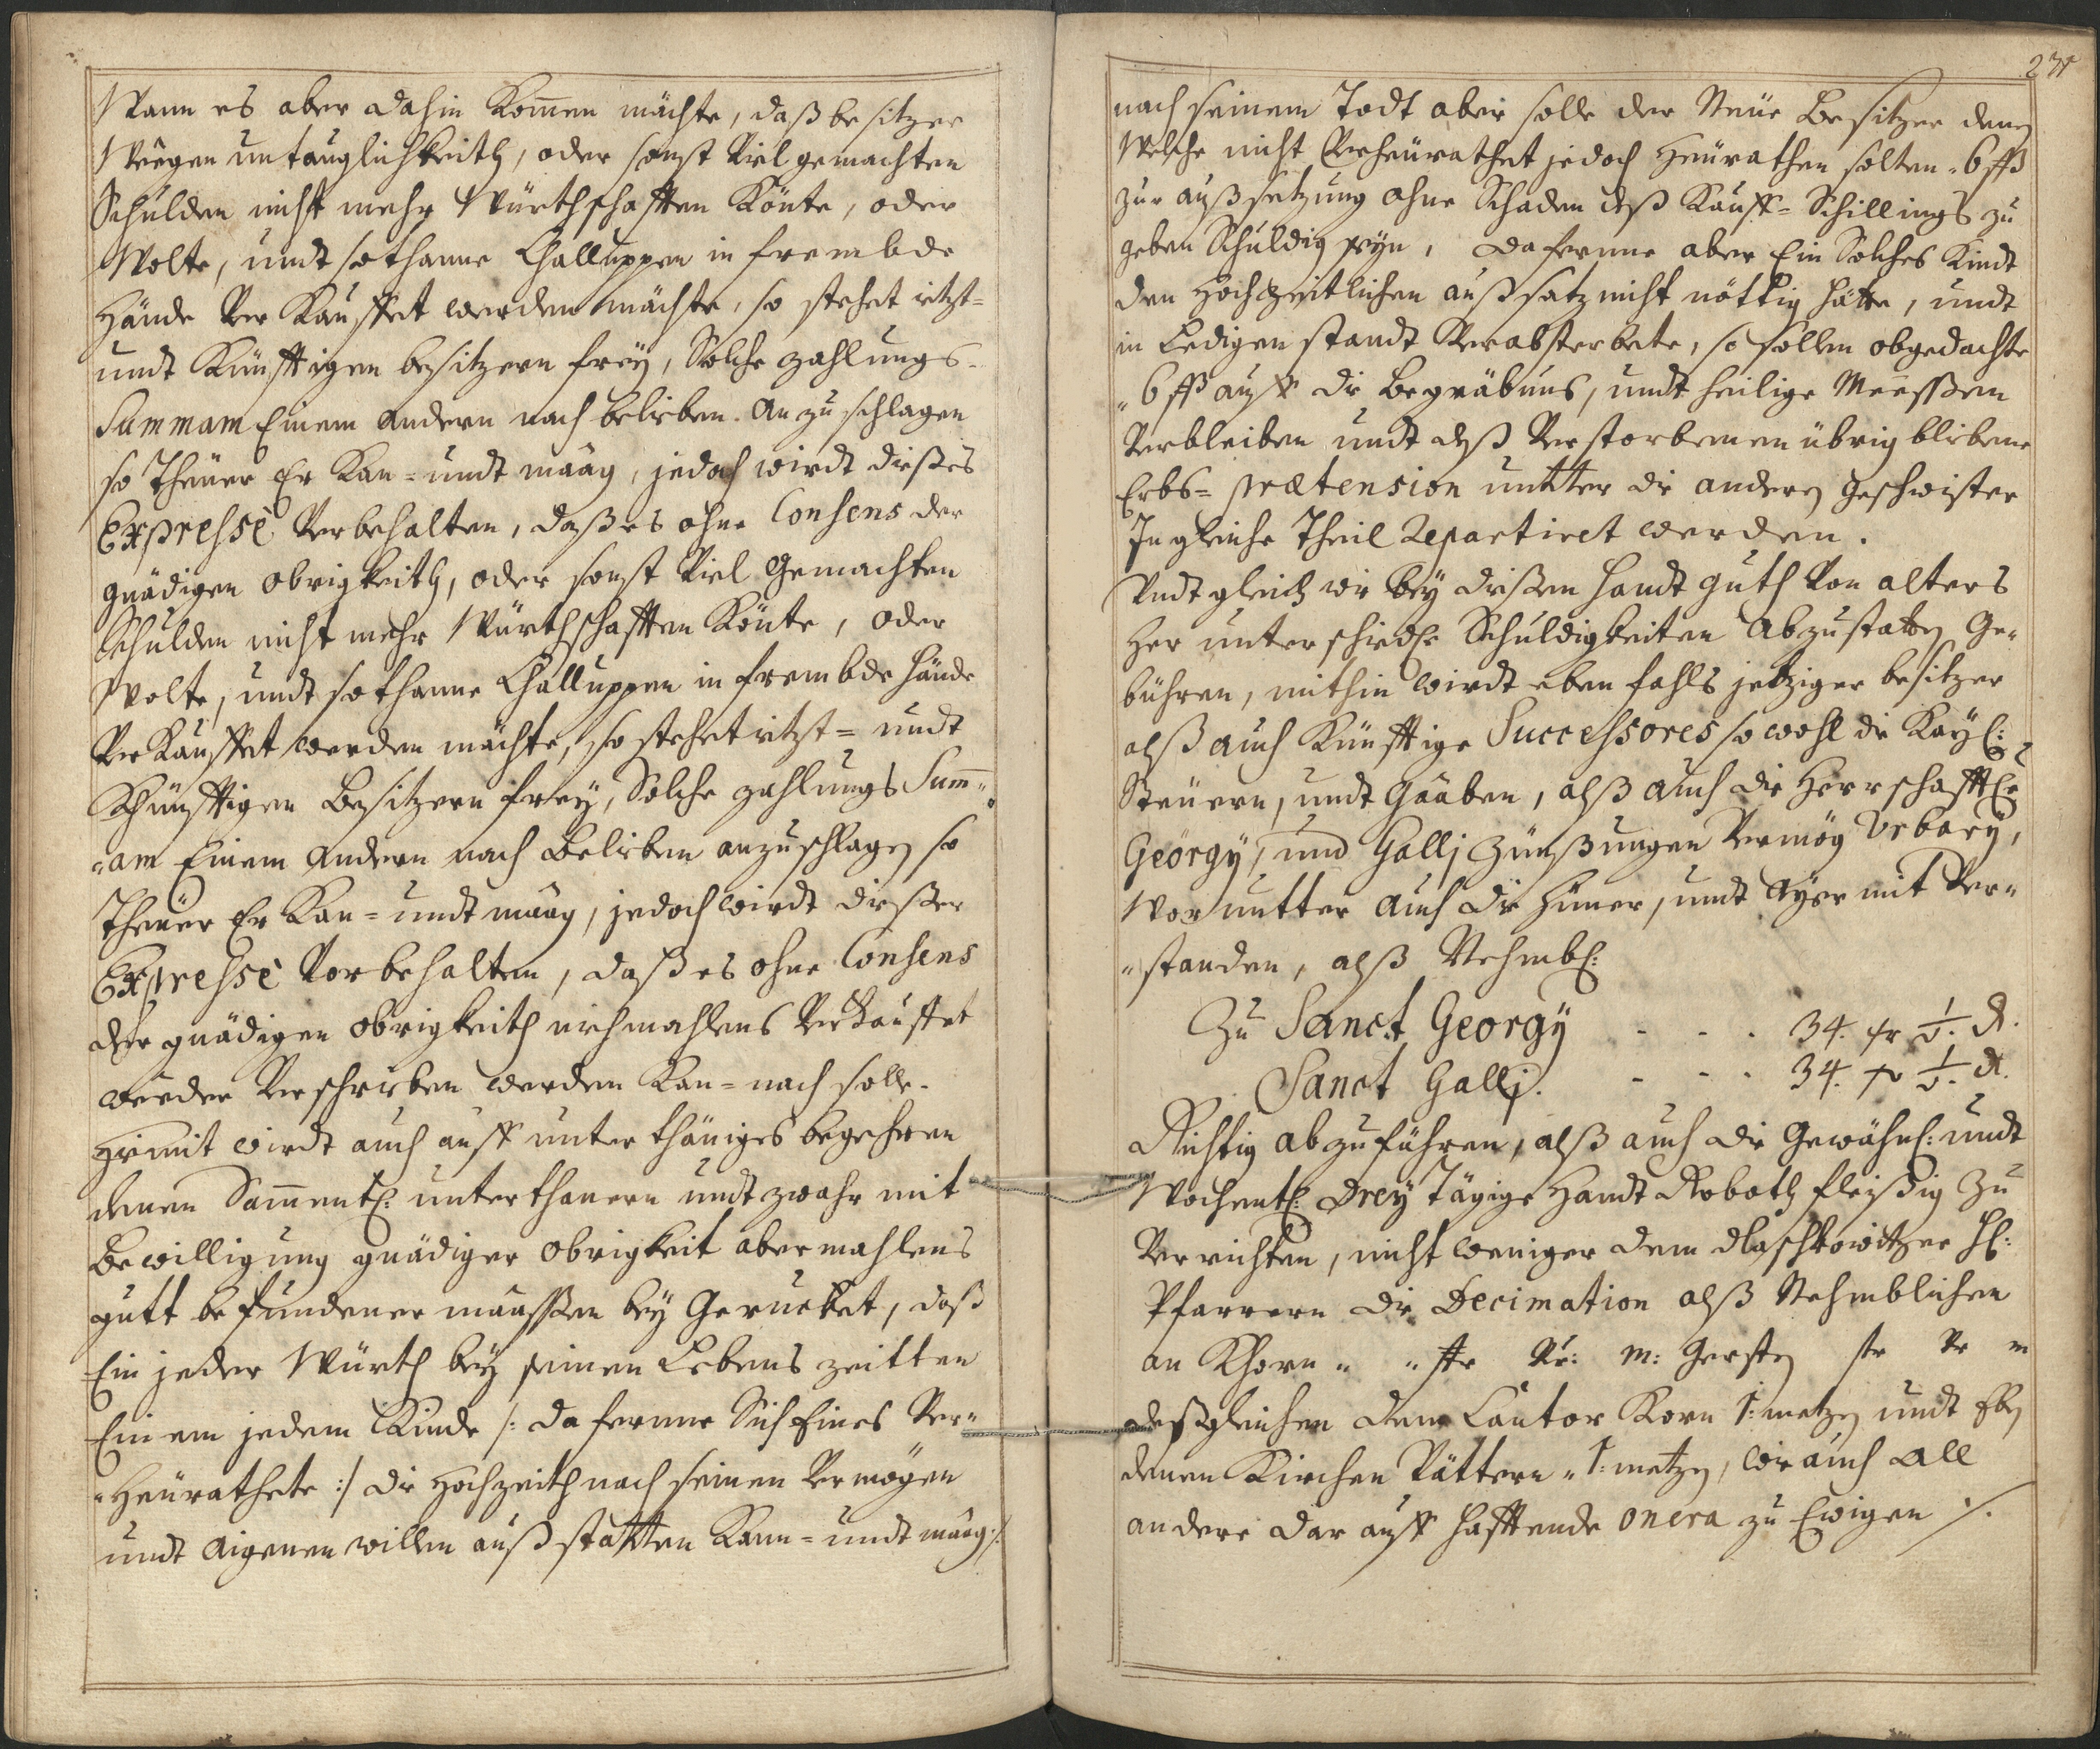 Wann es aber dahin Kom̃en mächte, daß besitzer
Weegen untauglichkeith, oder sonst Viel gemachten
Schulden nicht mehr Würthschafften Könte, oder
Wolte, undt sothanne Challuppen in frembde
Hände Ver Kauffet werden mächte, so stehet ietzt=
undt Künfftigen besitzern freÿ, Solche zahlungs-
Summam Einem andern nach belieben. An zu schlagen
so Theuer Er Kan= undt maag, jedoch wirdt dießes
Expressè Verbehalten, daß es ohne Consens der
gnädigen obrigkeith, oder sonst Viel Gemachten
Schulden nicht mehr Würthschafften Könte, oder
Wolte, undt sothanne Challuppen in frembde hände
Ver Kauffet werden mächte, so stehet ietzt= undt
Khünfftigen Besitzern freÿ, Solche zahlungs Sum̃„
„am Einem Andern nach Belieben anzuschlagen so
Theuer Er Kan= undt maag, jedoch wirdt dießer
Expressè Vorbehalten, daß es ohne Consens
der gnädigen obrigkeith niehmahlens Verkauffet
wieder Verschrieben werden Kan= nach solle.
Hiemit wirdt auch auff unterthäniges begehren
denen Sam̃entl: unterthanern undt zwahr mit
Bewilligung gnädiger obrigkeit abermahlens
gutt befundener maassen beÿ Gerucket, daß
Ein jeder Würth beÿ seinen Lebens zeitten
Ein em jedem Kinde /: da fernne Sich Eines Ver„
„Heurathete :/ die Hochzeith nach seinen Vermögen
undt aigenen willen außstatten Kann= undt maag /.
231
nach seinem Todt aber solle der Neue Besitzer denen
Welche nicht Verheurathet jedoch Heurathen solten „6 ßß
zur außsetzung ohne Schaden deß Kauff= Schillings zu
geben Schuldig seÿn, dafernne aber Ein Solches Kindt
den Hochzeitlichen außsatz nicht nöttig hätte, undt
in Ledigen standt Verabsterbete, so sollen obgedachte
„6 ßß auff die Begräbnus, undt heilige Meessen
Verbleiben undt deß Verstorbenen übrig bliebene
Erbs= prætension untter die anderen geschwister
In gleiche Theil Repartiret werden.
Undt gleich wie beÿ dießen Handt guth Von alters
Her unterschiedl: Schuldigkeiten Abzustatten Ge„
bühren, mithin wirdt ebenfahls jetziger besitzer
alß auch Künfftige Successores so wohl die Kaÿl:
Steuern, undt Gaaben, alß auch die Herrschafftl:
Geörgÿ, und Gallj Zünßungen Vermög Urbarÿ,
Worunter auch die Hüner, undt Aÿer mit Ver„
„standen, alß Nehmbl:
Zu Sanct Georgÿ - - - 34. xr ½ d.
Sanct Gallj. - - - 34. xr ½ d.
Richtig abzuführen, alß auch die Gewähnl: undt
Wochentl: dreÿ Tägige Handt Roboth fleißig Zu
Verrichten, nicht weniger dem dlaschkowitzer H:
Pfarrern die Decimation alß Nehmblichen
an Khorn „ „ str Vr: m: Gersten str Vr m
deßgleichen dem Cantor Korn 1: metzen undt
denen Kirchen Vättern „1: metzen, wie auch all
andere dar auff hafftende onera zu Ewigen /.